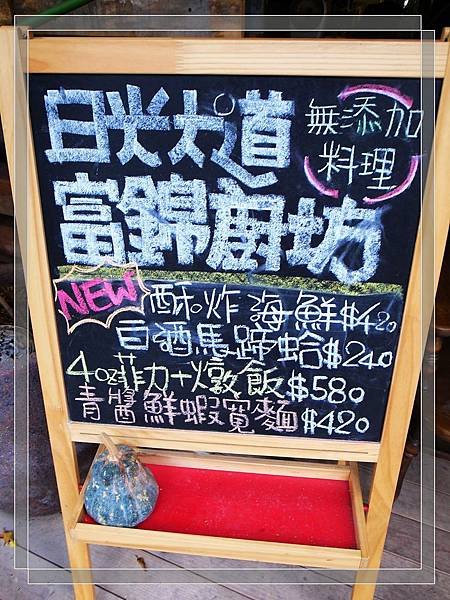 日光大道
無添加
料理
富錦廚坊
NEW 酥炸海鮮$420
白酒馬蹄蛤$240
4oz菲力+燉飯$580
青醬鮮蝦寬麵$420